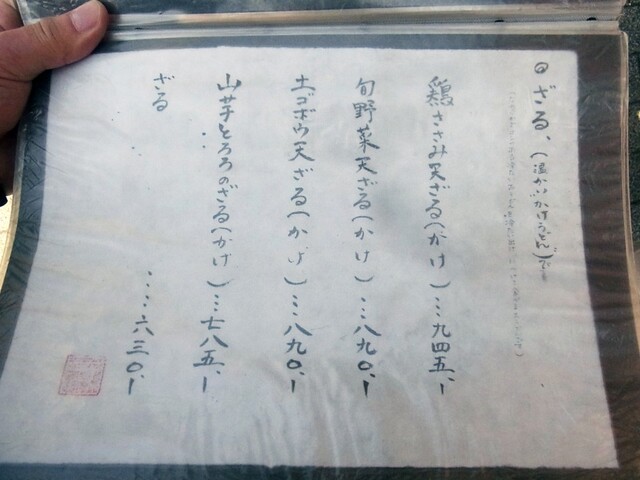 ◎ざる、(温かいかけうどん)
鶏ささみ天ざる(かけ)…九四五、ー
旬野菜天ざる(かけ)…八九〇、ー
土ゴボウ天ざる(かけ)…八九〇、ー
山芋とろろのざる(かけ)…七八五、ー
ざる…六三〇、ー